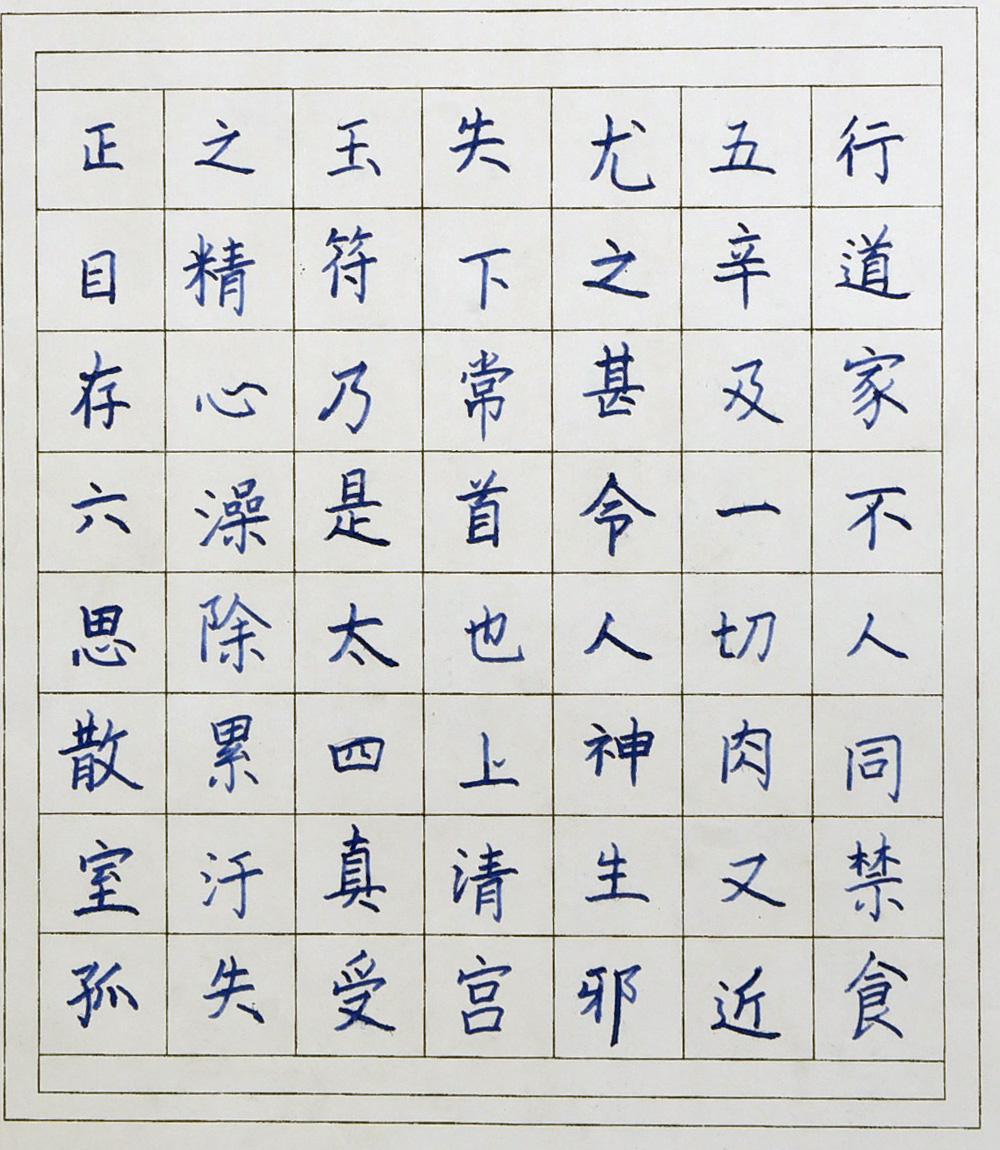 行道家不人同禁食
五辛及一切肉又近
尤之甚令人神生邪
失下常首也上清宫
玉符乃是太四真受
之精心澡除累汙失
正目存六思散室孤